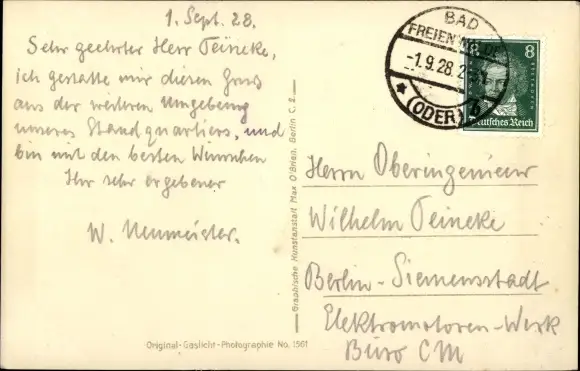 1. Sept. 28.
Sehr geehrter Herr Teineke,
ich gestatte mir diesen Gruß
aus der weiteren Umgebung
unseres Standquartiers, und
bin mit den besten Wünschen
Ihr sehr ergebener
W. Neumeister.
BAD
FREIENWALDE
-1.9.28.2
(ODER) b
8
8
BEETHOVEN
Deutsches Reich
Graphische Kunstanstalt Max O'Brien, Berlin C. 2.
Herrn Oberingenieur
Wilhelm Teineke
Berlin-Siemensstadt
Elektromotoren-Werk
Büro CM
Original-Gaslicht-Photographie No. 1561